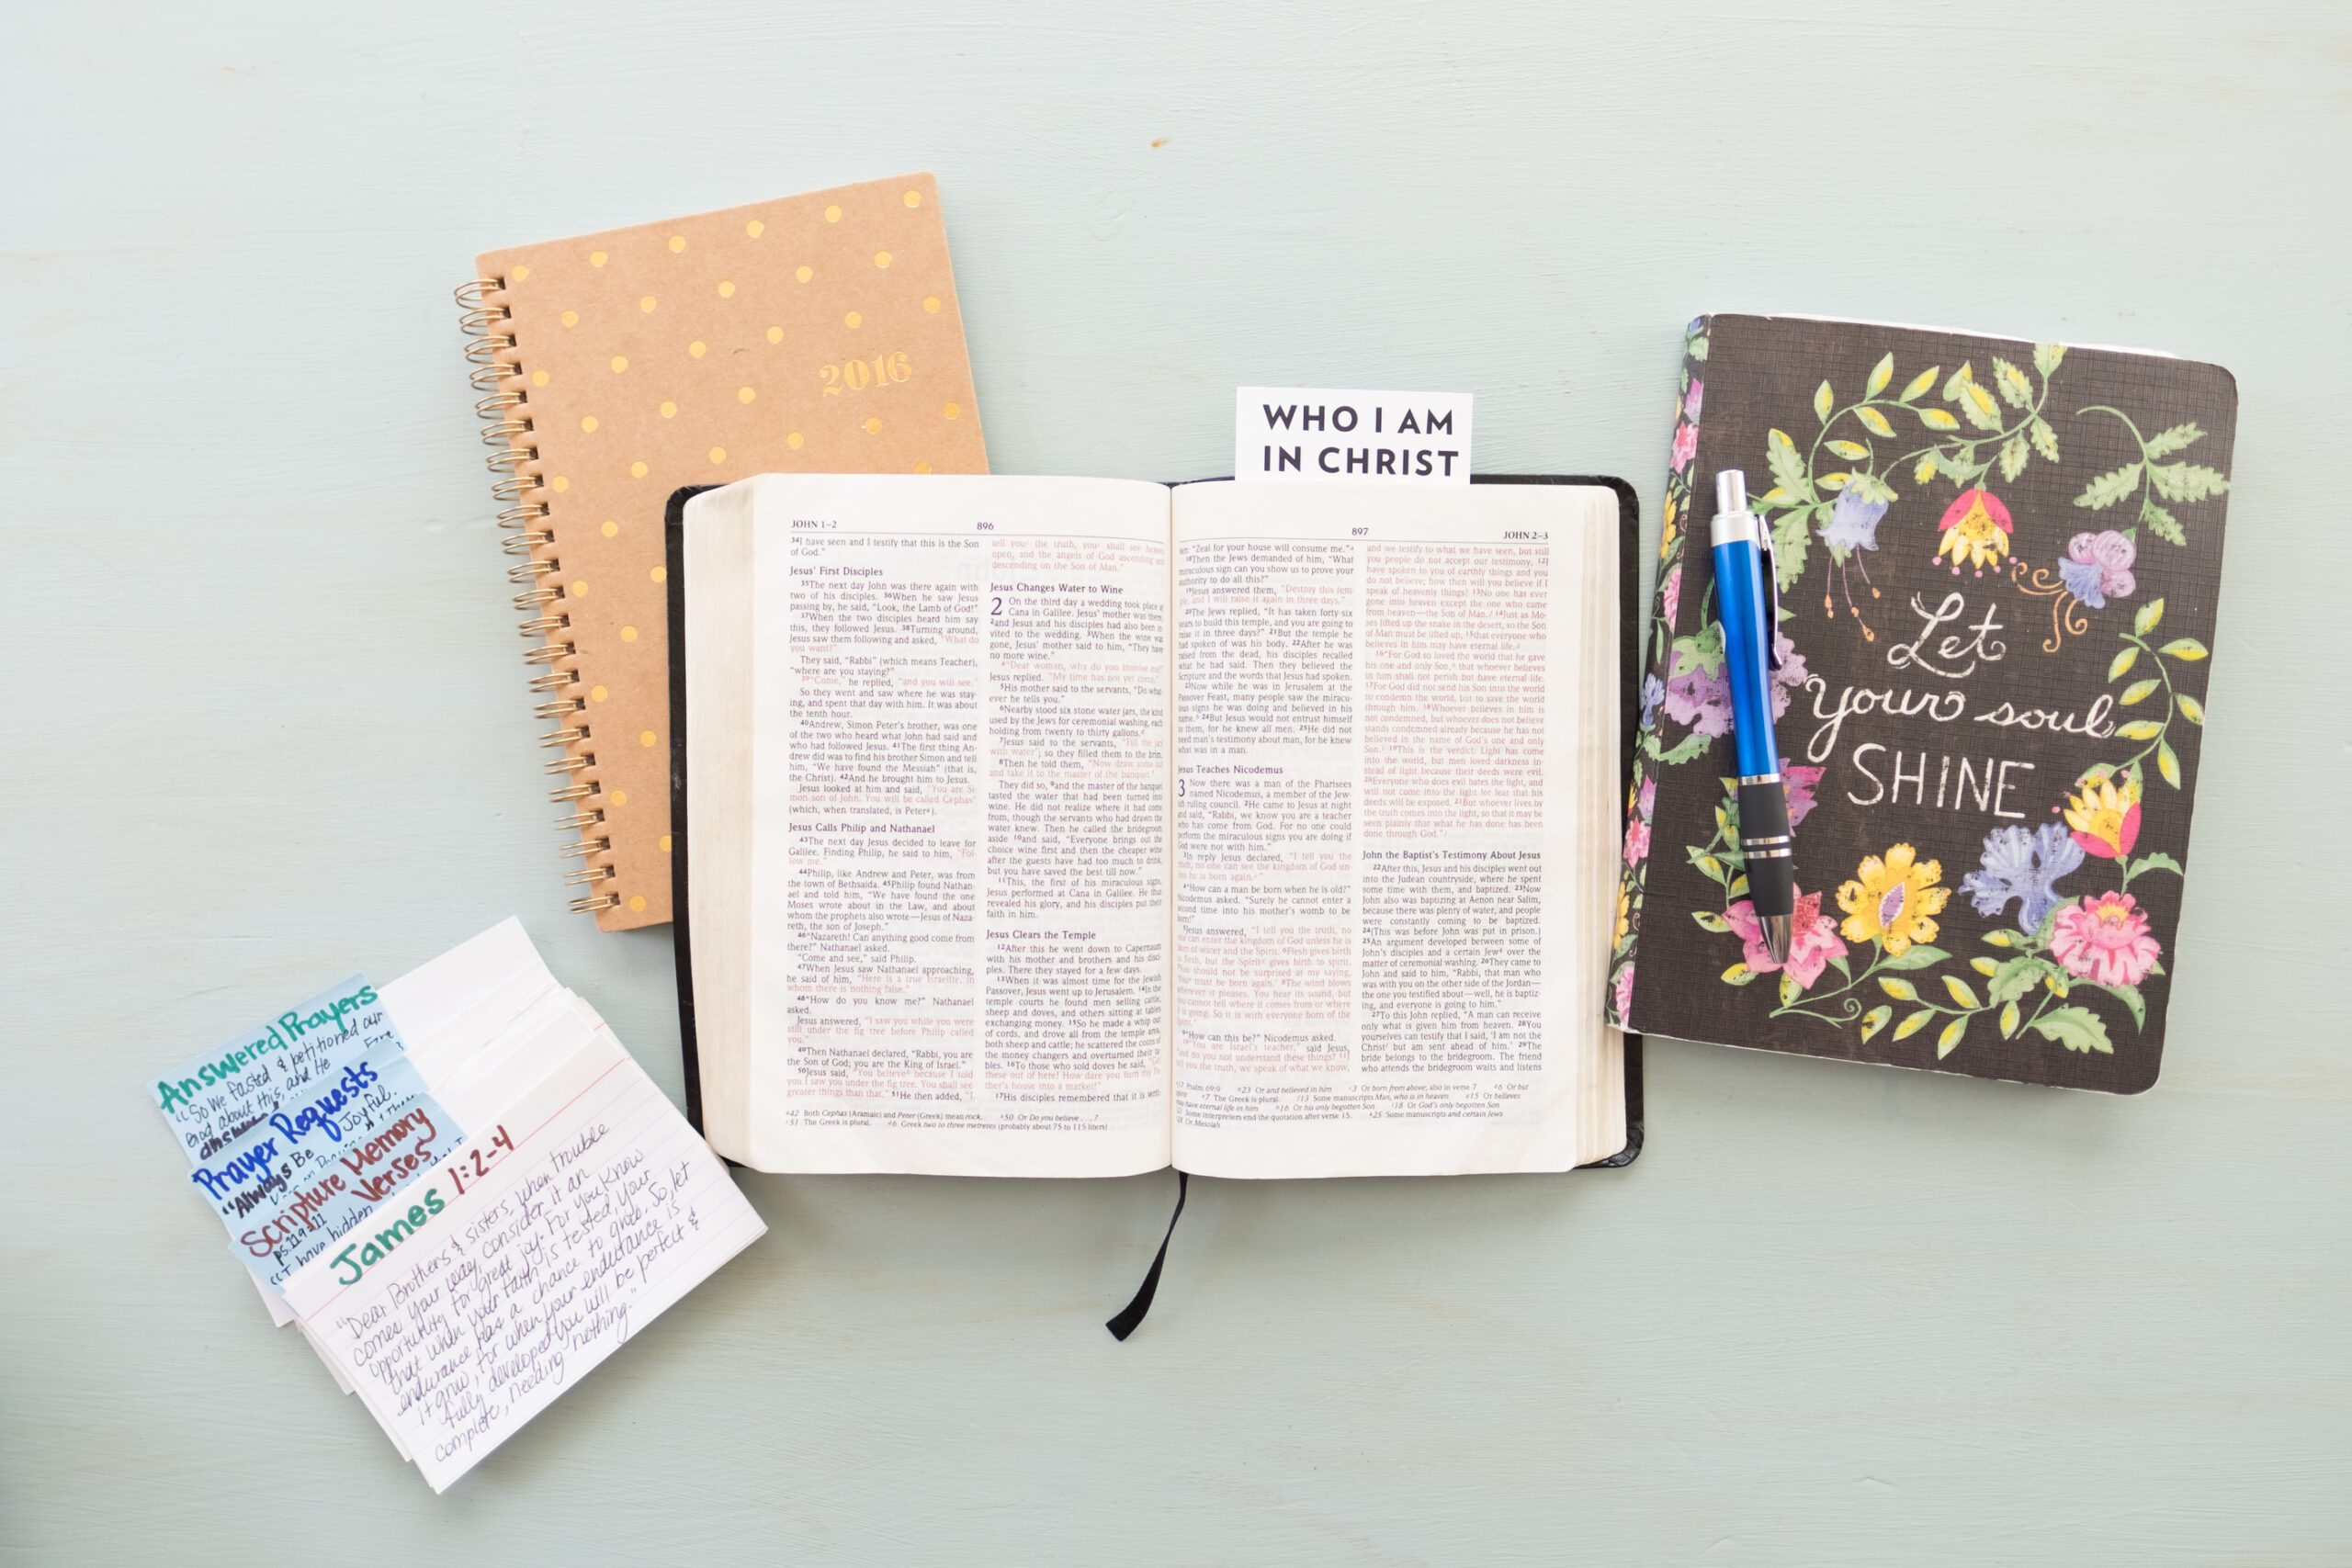 2016
WHO I AM
IN CHRIST
Let
your soul
SHINE
Answered Prayers
"So we fasted & petitioned our
God about this, and He
answered
Prayer Requests
"Always Be Joyful.
Scripture Memory
Verses
Ps. 119:11
"I have hidden
James 1:2-4
"Dear Brothers & sisters, when trouble
comes your way, consider it an
opportunity for great joy. For you know
that when your faith is tested, your
endurance has a chance to grow. So, let
it grow, for when your endurance is
fully developed you will be perfect &
complete, needing nothing."
JOHN 1–2
896
34I have seen and I testify that this is the Son
of God."
Jesus' First Disciples
35The next day John was there again with
two of his disciples. 36When he saw Jesus
passing by, he said, "Look, the Lamb of God!"
37When the two disciples heard him say
this, they followed Jesus. 38Turning around,
Jesus saw them following and asked, "What do
you want?"
They said, "Rabbi" (which means Teacher),
"where are you staying?"
39"Come," he replied, "and you will see."
So they went and saw where he was stay-
ing, and spent that day with him. It was about
the tenth hour.
40Andrew, Simon Peter's brother, was one
of the two who heard what John had said and
who had followed Jesus. 41The first thing An-
drew did was to find his brother Simon and tell
him, "We have found the Messiah" (that is,
the Christ). 42And he brought him to Jesus.
Jesus looked at him and said, "You are Si-
mon son of John. You will be called Cephas"
(which, when translated, is Peter).
Jesus Calls Philip and Nathanael
43The next day Jesus decided to leave for
Galilee. Finding Philip, he said to him, "Fol-
low me."
44Philip, like Andrew and Peter, was from
the town of Bethsaida. 45Philip found Nathan-
ael and told him, "We have found the one
Moses wrote about in the Law, and about
whom the prophets also wrote—Jesus of Naza-
reth, the son of Joseph."
46"Nazareth! Can anything good come from
there?" Nathanael asked.
"Come and see," said Philip.
47When Jesus saw Nathanael approaching,
he said of him, "Here is a true Israelite, in
whom there is nothing false."
48"How do you know me?" Nathanael
asked.
Jesus answered, "I saw you while you were
still under the fig tree before Philip called
you."
49Then Nathanael declared, "Rabbi, you are
the Son of God; you are the King of Israel."
50Jesus said, "You believe because I told
you I saw you under the fig tree. You shall see
greater things than that." 51He then added, "I
tell you the truth, you shall see heaven
open, and the angels of God ascending and
descending on the Son of Man."
Jesus Changes Water to Wine
2 On the third day a wedding took place at
Cana in Galilee. Jesus' mother was there,
2and Jesus and his disciples had also been in-
vited to the wedding. 3When the wine was
gone, Jesus' mother said to him, "They have
no more wine."
4"Dear woman, why do you involve me?"
Jesus replied. "My time has not yet come."
5His mother said to the servants, "Do what-
ever he tells you."
6Nearby stood six stone water jars, the kind
used by the Jews for ceremonial washing, each
holding from twenty to thirty gallons.
7Jesus said to the servants, "Fill the jars
with water"; so they filled them to the brim.
8Then he told them, "Now draw some out
and take it to the master of the banquet."
They did so, 9and the master of the banquet
tasted the water that had been turned into
wine. He did not realize where it had come
from, though the servants who had drawn the
water knew. Then he called the bridegroom
aside 10and said, "Everyone brings out the
choice wine first and then the cheaper wine
after the guests have had too much to drink;
but you have saved the best till now."
11This, the first of his miraculous signs,
Jesus performed at Cana in Galilee. He thus
revealed his glory, and his disciples put their
faith in him.
Jesus Clears the Temple
12After this he went down to Capernaum
with his mother and brothers and his disci-
ples. There they stayed for a few days.
13When it was almost time for the Jewish
Passover, Jesus went up to Jerusalem. 14In the
temple courts he found men selling cattle,
sheep and doves, and others sitting at tables
exchanging money. 15So he made a whip out
of cords, and drove all from the temple area,
both sheep and cattle; he scattered the coins of
the money changers and overturned their ta-
bles. 16To those who sold doves he said, "Get
these out of here! How dare you turn my Fa-
ther's house into a market!"
17His disciples remembered that it is writ-
42 Both Cephas (Aramaic) and Peter (Greek) mean rock. 50 Or Do you believe . . . ?
51 The Greek is plural. 6 Greek two to three metretes (probably about 75 to 115 liters)
897
JOHN 2–3
"Zeal for your house will consume me."
18Then the Jews demanded of him, "What
miraculous sign can you show us to prove your
authority to do all this?"
19Jesus answered them, "Destroy this tem-
ple, and I will raise it again in three days."
20The Jews replied, "It has taken forty-six
years to build this temple, and you are going to
raise it in three days?" 21But the temple he
had spoken of was his body. 22After he was
raised from the dead, his disciples recalled
what he had said. Then they believed the
Scripture and the words that Jesus had spoken.
23Now while he was in Jerusalem at the
Passover Feast, many people saw the miracu-
lous signs he was doing and believed in his
name. 24But Jesus would not entrust himself
to them, for he knew all men. 25He did not
need man's testimony about man, for he knew
what was in a man.
Jesus Teaches Nicodemus
3 Now there was a man of the Pharisees
named Nicodemus, a member of the Jew-
ish ruling council. 2He came to Jesus at night
and said, "Rabbi, we know you are a teacher
who has come from God. For no one could
perform the miraculous signs you are doing if
God were not with him."
3In reply Jesus declared, "I tell you the
truth, no one can see the kingdom of God un-
less he is born again."
4"How can a man be born when he is old?"
Nicodemus asked. "Surely he cannot enter a
second time into his mother's womb to be
born!"
5Jesus answered, "I tell you the truth, no
one can enter the kingdom of God unless he is
born of water and the Spirit. 6Flesh gives birth
to flesh, but the Spirit gives birth to spirit.
7You should not be surprised at my saying,
'You must be born again.' 8The wind blows
wherever it pleases. You hear its sound, but
you cannot tell where it comes from or where
it is going. So it is with everyone born of the
Spirit."
9"How can this be?" Nicodemus asked.
10"You are Israel's teacher," said Jesus,
"and do you not understand these things? 11I
tell you the truth, we speak of what we know,
and we testify to what we have seen, but still
you people do not accept our testimony. 12I
have spoken to you of earthly things and you
do not believe; how then will you believe if I
speak of heavenly things? 13No one has ever
gone into heaven except the one who came
from heaven—the Son of Man. 14Just as Mo-
ses lifted up the snake in the desert, so the Son
of Man must be lifted up, 15that everyone who
believes in him may have eternal life.
16"For God so loved the world that he gave
his one and only Son, that whoever believes
in him shall not perish but have eternal life.
17For God did not send his Son into the world
to condemn the world, but to save the world
through him. 18Whoever believes in him is
not condemned, but whoever does not believe
stands condemned already because he has not
believed in the name of God's one and only
Son. 19This is the verdict: Light has come
into the world, but men loved darkness in-
stead of light because their deeds were evil.
20Everyone who does evil hates the light, and
will not come into the light for fear that his
deeds will be exposed. 21But whoever lives by
the truth comes into the light, so that it may be
seen plainly that what he has done has been
done through God."
John the Baptist's Testimony About Jesus
22After this, Jesus and his disciples went out
into the Judean countryside, where he spent
some time with them, and baptized. 23Now
John also was baptizing at Aenon near Salim,
because there was plenty of water, and people
were constantly coming to be baptized.
24(This was before John was put in prison.)
25An argument developed between some of
John's disciples and a certain Jew over the
matter of ceremonial washing. 26They came to
John and said to him, "Rabbi, that man who
was with you on the other side of the Jordan—
the one you testified about—well, he is baptiz-
ing, and everyone is going to him."
27To this John replied, "A man can receive
only what is given him from heaven. 28You
yourselves can testify that I said, 'I am not the
Christ but am sent ahead of him.' 29The
bride belongs to the bridegroom. The friend
who attends the bridegroom waits and listens
17 Psalm 69:9 23 Or and believed in him 3 Or born from above; also in verse 7 6 Or but
7 The Greek is plural. 13 Some manuscripts Man, who is in heaven 15 Or believes
may have eternal life in him 16 Or his only begotten Son 18 Or God's only begotten Son
Some interpreters end the quotation after verse 15. 25 Some manuscripts and certain Jews
28 Or Messiah